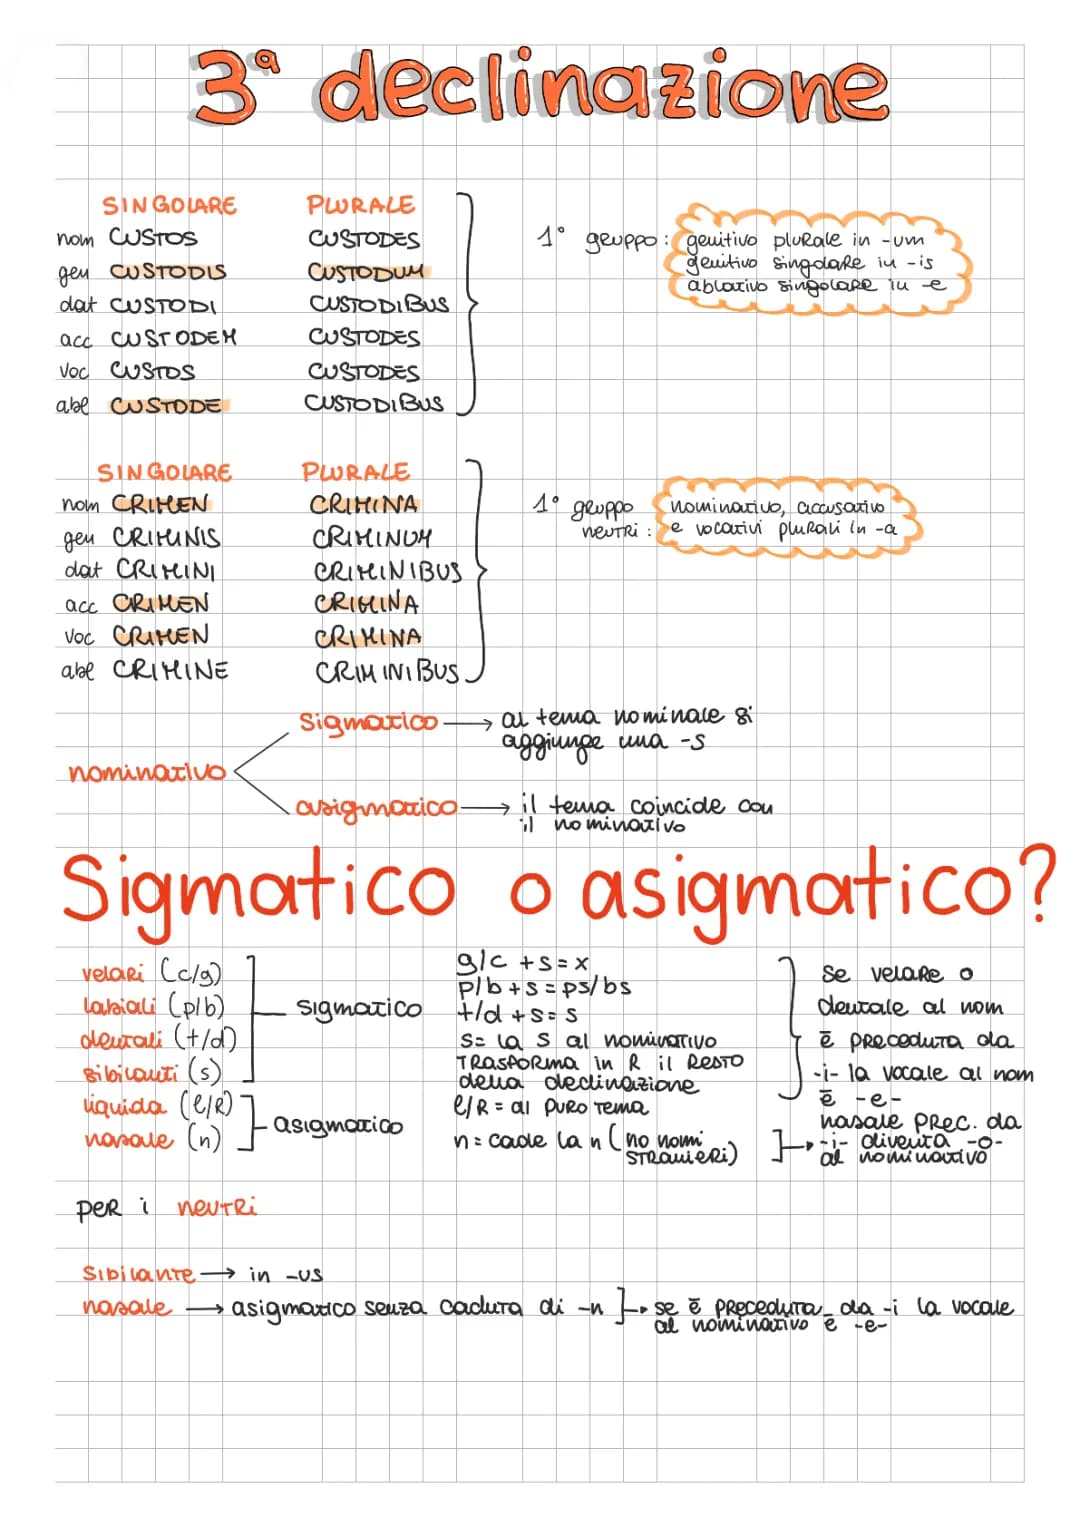 3ª declinazione
SINGOLARE PLURALE
nom CUSTOS CUSTODES
gen CUSTODIS CUSTODUM
dat CUSTODI CUSTODIBUS
acc CUSTODEM CUSTODES
voc CUSTOS CUSTODES
abl CUSTODE CUSTODIBUS
1° gruppo: genitivo plurale in -um
genitivo singolare in -is
ablativo singolare in -e
SINGOLARE PLURALE
nom CRIMEN CRIMINA
gen CRIMINIS CRIMINUM
dat CRIMINI CRIMINIBUS
acc CRIMEN CRIMINA
voc CRIMEN CRIMINA
abl CRIMINE CRIMINIBUS
1° gruppo neutri: nominativo, accusativo
e vocativi plurali in -a
nominativo
sigmatico → al tema nominale si
aggiunge una -s
asigmatico → il tema coincide con
il nominativo
Sigmatico o asigmatico?
velari (c/g)
labiali (p/b)
dentali (t/d)
sibilanti (s)
sigmatico
liquida (l/r)
nasale (n)
asigmatico
g/c + s = x
p/b + s = ps/bs
t/d + s = s
s = la s al nominativo
trasforma in r il resto
della declinazione
l/r = al puro tema
n = cade la n (no nomi
stranieri)
se velare o
dentale al nom
è preceduta da
-i- la vocale al nom
è -e-
nasale prec. da
-i- diventa -o-
al nominativo
per i neutri
sibilante → in -us
nasale → asigmatico senza caduta di -n → se è preceduta da -i la vocale
al nominativo è -e-